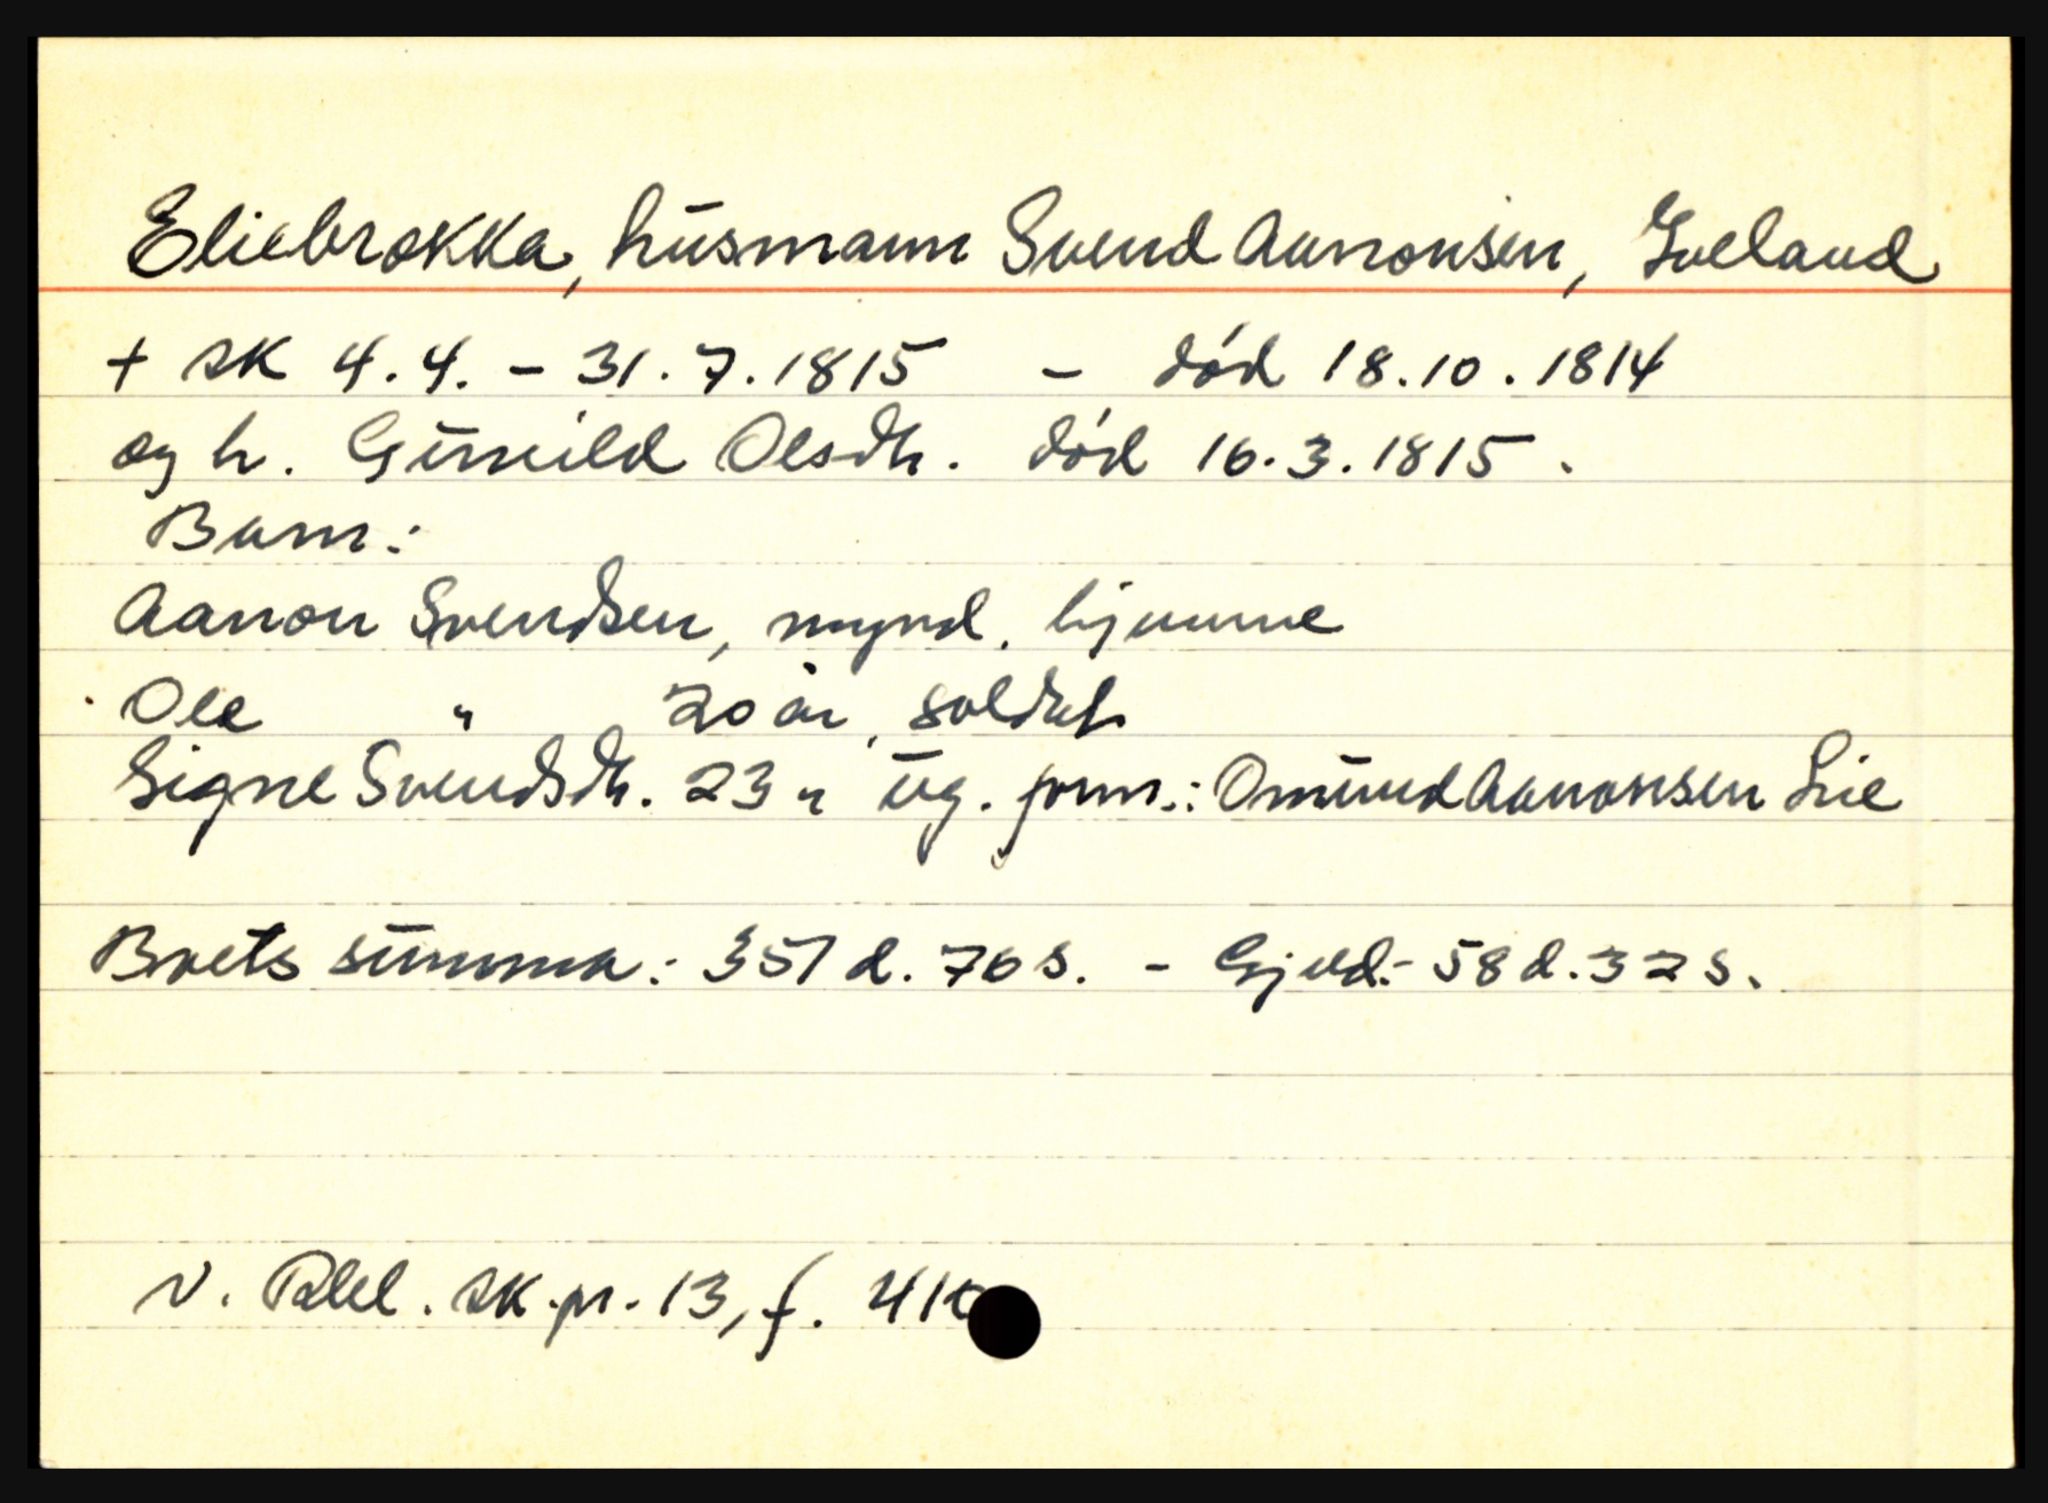 Eliebrokka, husmann Svend Aanonsen, Iveland
+ sk 4.4. - 31.7.1815 - død 18.10.1814
og h. Gunnild Olsdtr. død 16.3.1815.
Barn:
Aanon Svendsen, mynd. hjemme
Ole " 20 år, soldat
Signe Svendsdtr. 23 " ug. form.: Omund Aanonsen Lie
Boets summa: 351 d. 76 s. - Gjeld: 58 d. 32 s.
N. Rbl. sk.pr. 13, f. 41